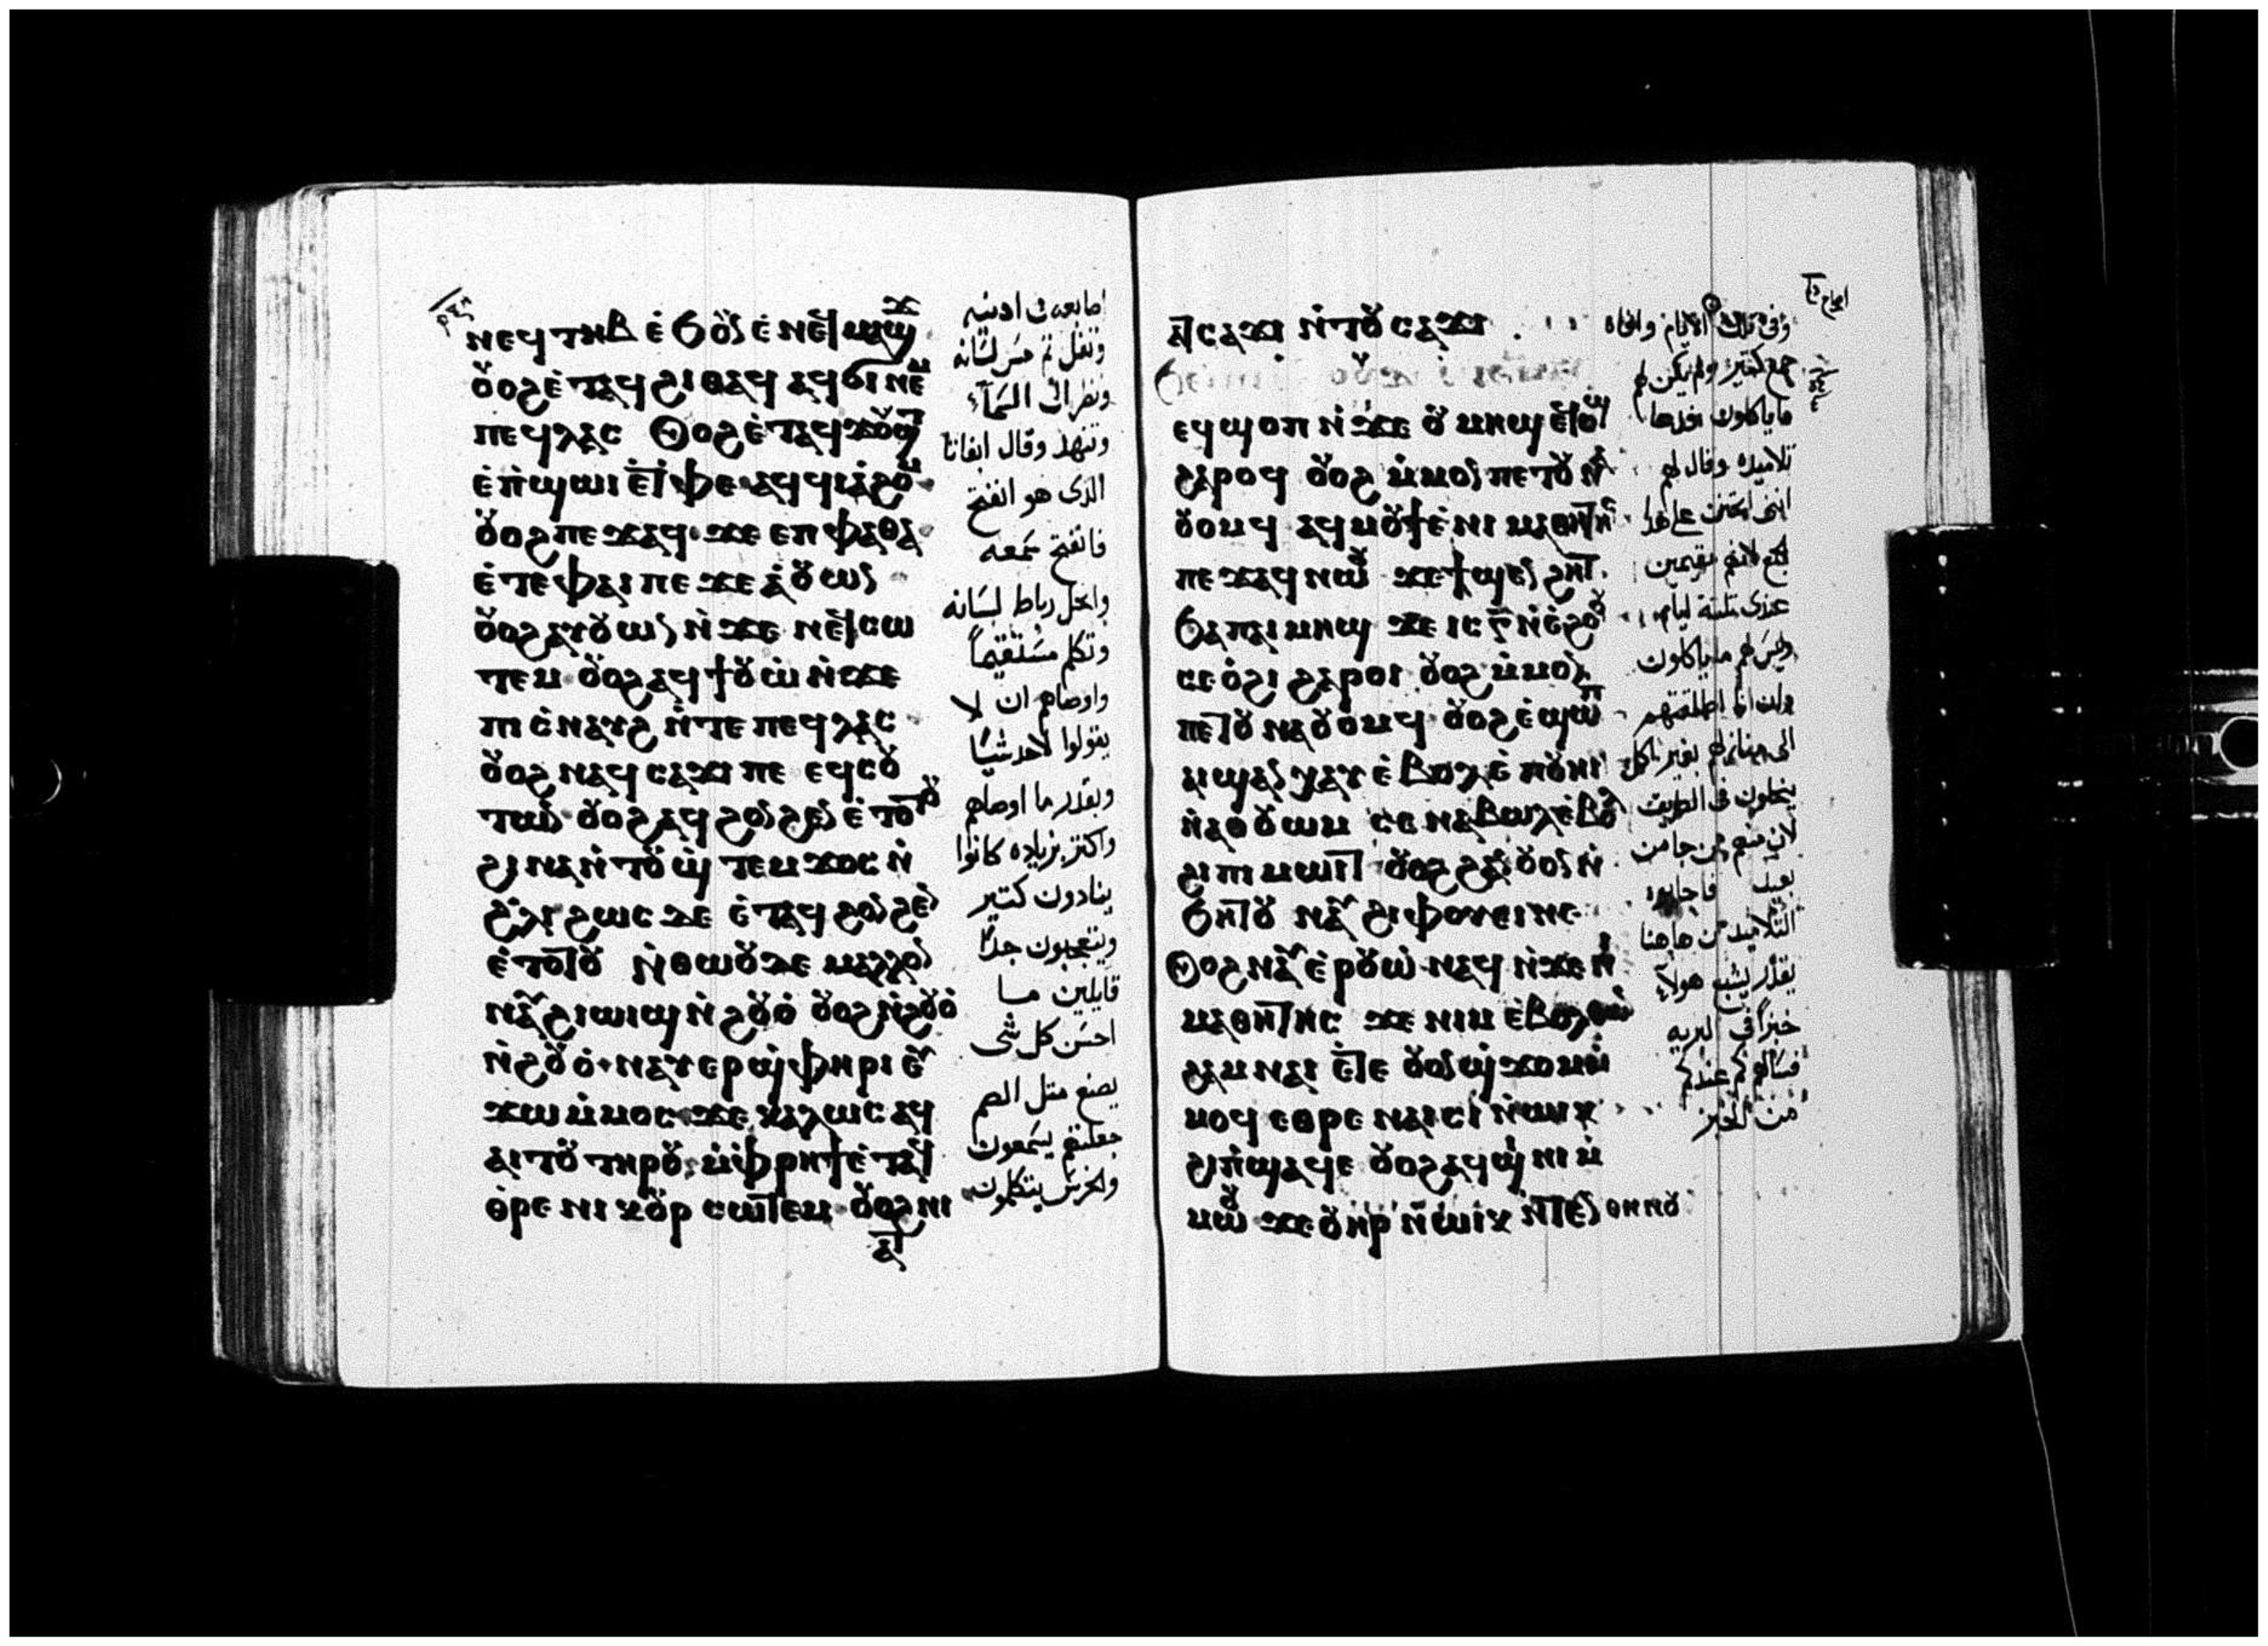 ⲛⲉϥⲧⲏⲃ ⲉϧⲟⲩⲛ ⲉⲛⲉϥⲙⲁϣϫ
ⲟⲩⲟϩ ⲉⲧⲁϥϩⲓⲑⲁϥ ⲁϥϭⲓ ⲛⲉⲙ
ⲡⲉϥⲗⲁⲥ Ⲟⲩⲟϩ ⲉⲧⲁϥϫⲟⲩϣⲧ
ⲉⲡϣⲱⲓ ⲉⲧⲫⲉ ⲁϥϥⲓⲁϩⲟⲙ
ⲟⲩⲟϩ ⲡⲉϫⲁϥ ϫⲉ ⲉⲡⲫⲁⲑⲁ
ⲉⲧⲉ ⲫⲁⲓ ⲡⲉ ϫⲉ ⲁⲟⲩⲱⲛ
ⲟⲩⲟϩ ⲁⲩⲟⲩⲱⲛ ⲛϫⲉ ⲛⲉϥⲥⲱ
ⲧⲉⲙ ⲟⲩⲟϩ ⲁϥϯⲟⲩⲱ ⲛϫⲉ
ⲡⲓⲥⲛⲁⲩϩ ⲛⲧⲉ ⲡⲉϥⲗⲁⲥ
ⲟⲩⲟϩ ⲛⲁϥⲥⲁϫⲓ ⲡⲉ ⲉϥⲥⲟⲩ
ⲧⲱⲛ ⲟⲩⲟϩ ⲁϥϩⲟⲛϩⲉⲛ ⲉⲧⲟⲧⲟⲩ
ϩⲓⲛⲁ ⲛⲧⲟⲩϣⲧⲉⲙϫⲟⲥ ⲛ
ϩⲗⲓ ϩⲱⲥ ⲇⲉ ⲉⲧⲁϥϩⲟⲛϩⲉⲛ
ⲉⲧⲟⲧⲟⲩ ⲛⲑⲱⲟⲩ ⲇⲉ ⲙⲁⲗⲗⲟⲛ
ⲛⲁⲩϩⲓⲱⲓϣ ⲛϩⲟⲩⲟ ⲟⲩⲟϩ ⲛϩⲟⲩⲟ
ⲛϩⲟⲩⲟ ⲛⲁⲩⲉⲣϣⲫⲏⲣⲓ ⲉⲩ
ϫⲱ ⲙⲙⲟⲥ ϫⲉ ⲕⲁⲗⲱⲥ ⲁϥ
ⲁⲓⲧⲟⲩ ⲧⲏⲣⲟⲩ ⲙⲫⲣⲏϯ ⲉⲧⲁϥ
ⲑⲣⲉ ⲛⲓⲕⲟⲩⲣ ⲥⲱⲧⲉⲙ ⲟⲩⲟϩ ⲛⲓ
ⲁⲧ
اصابعه فى ادنيه
وتفل ثم مس لسانه
ونظر الى السمآء
وتنهد وقال ابفاتا
الذى هو انفتح
فانفتح سمعه
وانحل رباط لسانه
وتكلم مستقيماً
واوصاهم ان لا
يقولوا لاحد شيئا
وبقدر ما اوصاهم
واكتر بزياده كانوا
ينادون كتير
ويتعجبون جداً
قايلين ما
احسن كل شى
يصنع متل الصم
جعلتهم يسمعون
والخرس يتكلمون
ⲁⲧⲥⲁϫⲓ ⲛⲧⲟⲩⲥⲁϫⲓ
ⲉϥϣⲟⲡ ⲛϫⲉ ⲟⲩⲙⲏϣ ⲉⲧⲟϣ
ϩⲁⲣⲟϥ ⲟⲩⲟϩ ⲙⲙⲟⲛ ⲡⲉⲧⲟⲩⲛⲁ
ⲟⲩⲟⲙϥ ⲁϥⲙⲟⲩϯ ⲉⲛⲓⲙⲁⲑⲏⲧⲏⲥ
ⲡⲉϫⲁϥ ⲛⲱⲟⲩ ϫⲉ ϯϣⲉⲛϩⲏⲧ
ϧⲁ ⲡⲁⲓⲙⲏϣ ϫⲉ ⲓⲥ ⲅ̅ ⲛⲉϩⲟⲟⲩ
ⲥⲉⲟϩⲓ ϩⲁⲣⲟⲓ ⲟⲩⲟϩ ⲙⲙⲟⲛ
ⲡⲉⲧⲟⲩⲛⲁⲟⲩⲟⲙϥ ⲟⲩⲟϩ ⲉϣⲱⲡ
ⲁⲓϣⲁⲛⲭⲁⲩ ⲉⲃⲟⲗ ⲉⲡⲟⲩⲏⲓ
ⲛⲁⲑⲟⲩⲱⲙ ⲥⲉⲛⲁⲃⲱⲗ ⲉⲃⲟⲗ
ϩⲓ ⲡⲓⲙⲱⲓⲧ ⲟⲩⲟϩ ϩⲁⲛⲟⲩⲟⲛ ⲛ
ϧⲏⲧⲟⲩ ⲛⲁⲩϩⲓⲫⲟⲩⲉⲓ ⲛⲉ
Ⲟⲩⲟϩ ⲛⲁⲩⲉⲣⲟⲩⲱ ⲛⲁϥ ⲛϫⲉ ⲛⲓ
ⲙⲁⲑⲏⲧⲏⲥ ϫⲉ ⲛⲓⲙ ⲉⲃⲟⲗ
ϩⲁⲙⲛⲁⲓ ⲉⲧⲉ ⲟⲩⲟⲛϣϫⲟⲙ ⲙ
ⲙⲟϥ ⲉⲑⲣⲉ ⲛⲁⲓ ⲥⲓ ⲛⲱⲓⲕ
ϩⲓ ⲡϣⲁϥⲉ ⲟⲩⲟϩ ⲁϥϣⲓⲛⲓ ⲙ
ⲙⲱⲟⲩ ϫⲉ ⲟⲩⲏⲣ ⲛⲱⲓⲕ ⲛⲧⲉⲛⲑⲏⲛⲟⲩ
وفى تلك الايام وافاه
جمع كتير ولم يكن لهم
ما ياكلون فدعا
تلاميده وقال لهم
اننى اتحنن على هدا
الجمع لانهم مقيمين
عندى تلتة ايام
وليس لهم ما ياكلون
وان انا اطلقتهم
الى منازلهم بغير اكل
ينحلون فى الطريق
لان منهم من جا من
بعيد فاجابوه
التلاميد من هاهنا
يقدر يشبع هولآء
خبزاً فى البريه
فسالهم كم عندكم
من الخبز